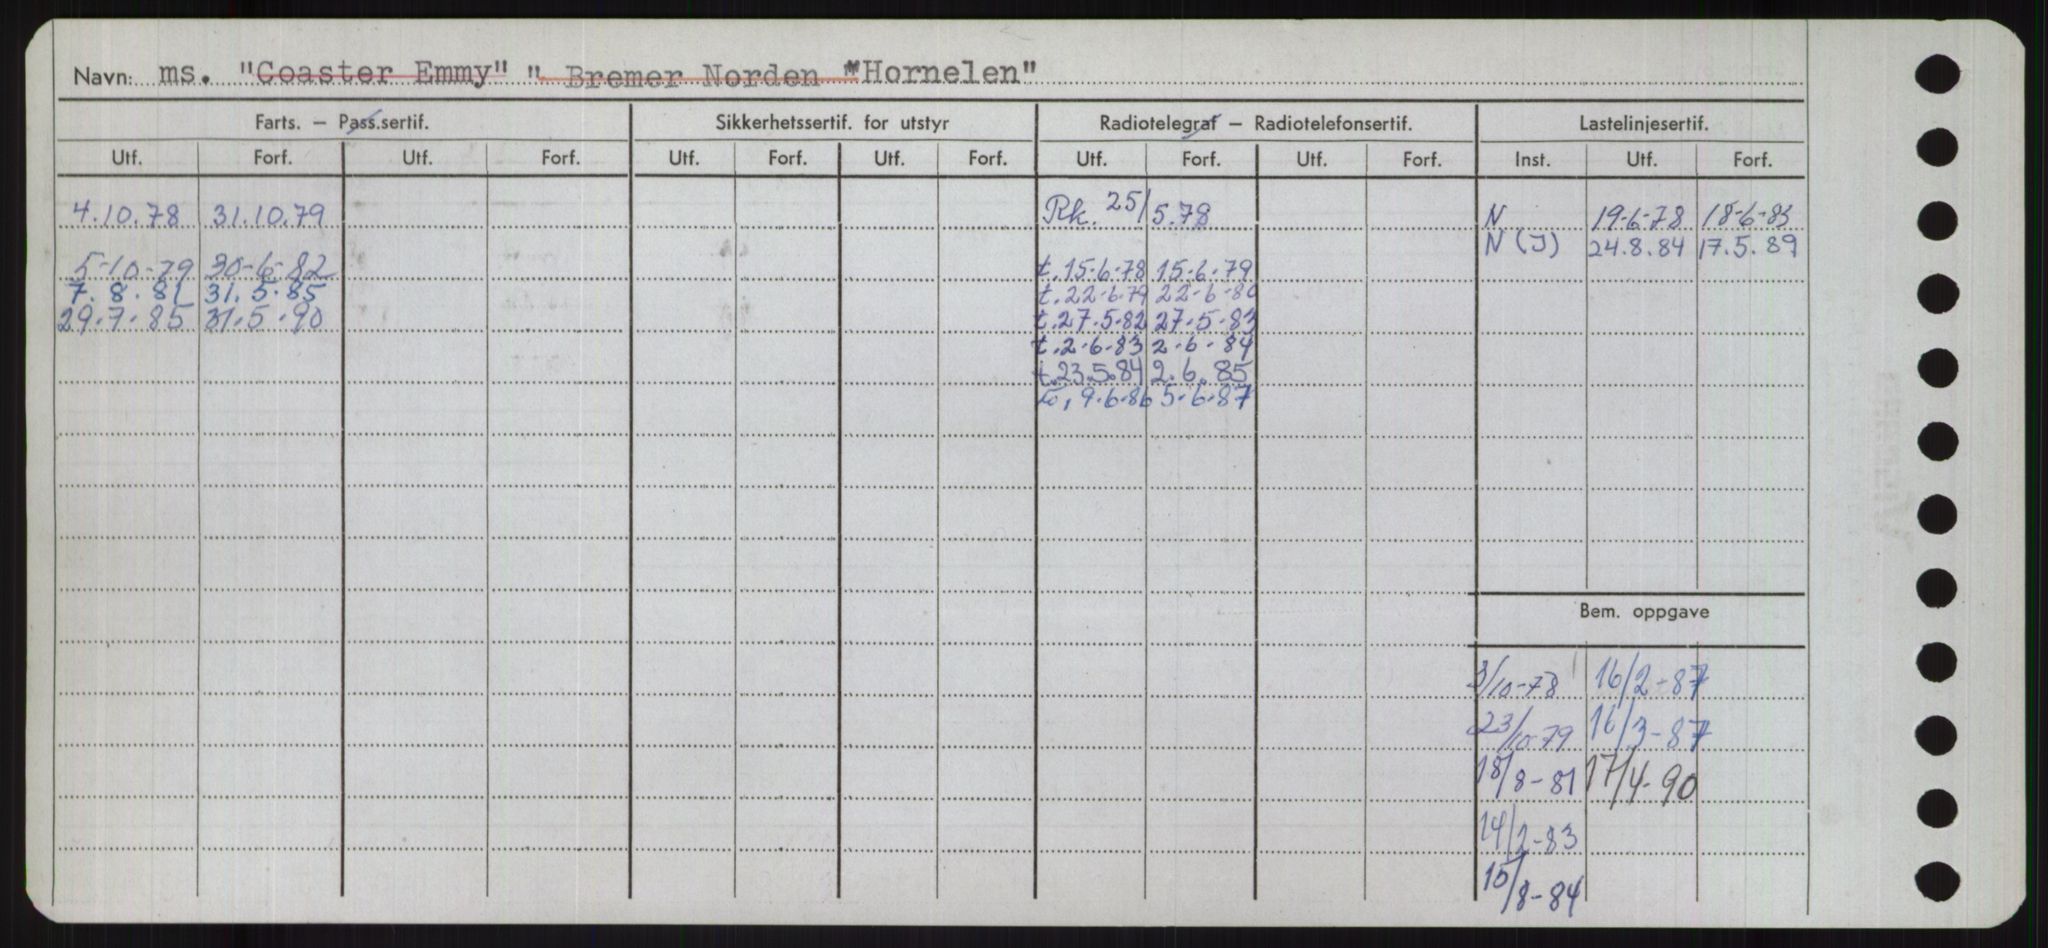 Navn: ms. "Coaster Emmy" " Bremer Norden "Hornelen"
Farts. — Pass.sertif. Sikkerhetssertif. for utstyr Radiotelegraf — Radiotelefonsertif. Lastelinjesertif.
Utf. Forf. Utf. Forf. Utf. Forf. Utf. Forf. Utf. Forf. Utf. Forf. Inst. Utf. Forf.
4.10.78 31.10.79 Rk. 25/5.78 N 19-6-78 18-6-83
N (J) 24.8.84 17.5.89
5-10-79 30-6-82 t.15-6-78 15-6-79
7.8.81 31.5.85 t.22-6-79 22-6-80
29.7.85 31.5.90 t.27.5.82 27.5.83
t.2-6-83 2-6-84
t.23.5.84 2.6.85
9.6.86 5-6-87
Bem. oppgave
3/10-78 16/2-87
23/10-79 16/3-87
18/8-81 17/4-90
14/2-83
15/8-84